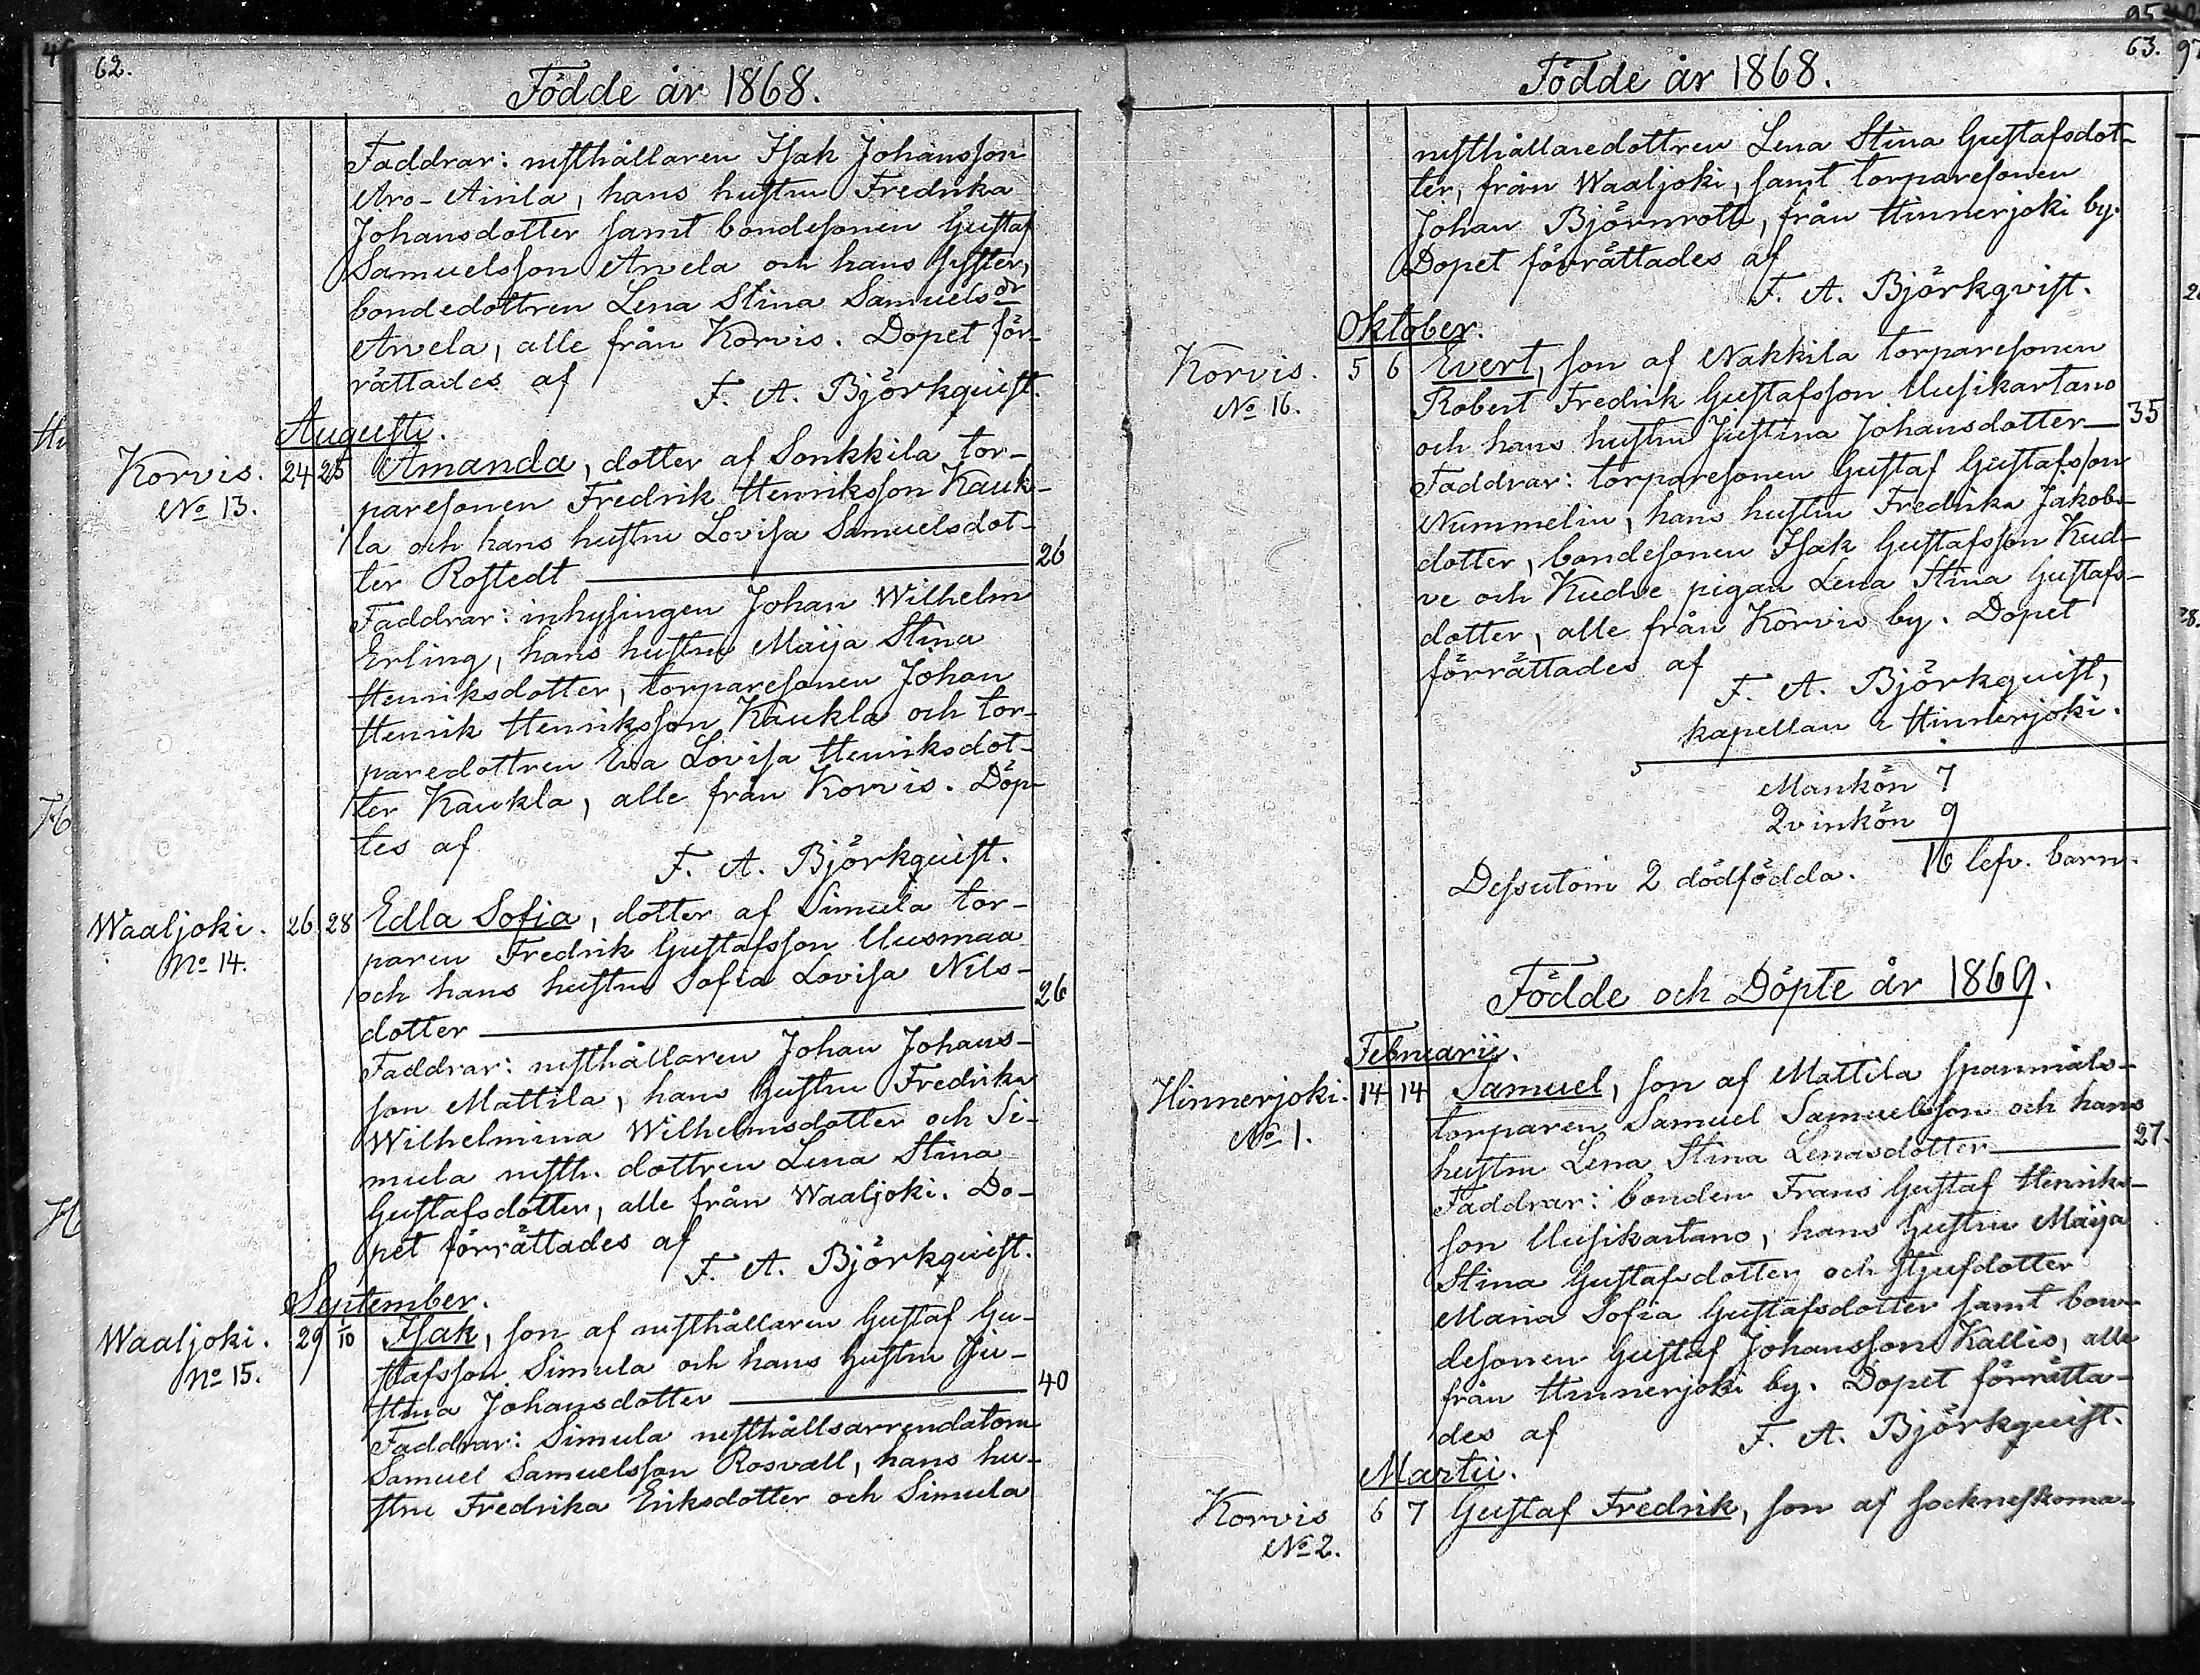 62.
Födde år 1868.
Faddrar: rusthållaren Isak Johansson
Aro-Airila, hans hustru Fredrika
Johansdotter samt bondesonen Gustaf
Samuelsson Arvela och hans syster,
bondedottren Lena Stina Samuelsdr
Arvela, alle från Korvis. Dopet för-
rättades af
F. A. Björkquist.
Augusti.
Korvis. 24 25 Amanda, dotter af Sonkkila tor-
No 13. paresonen Fredrik Henriksson Kauk-
la och hans hustru Lovisa Samuelsdot-
ter Rostedt — 26
Faddrar: inhysingen Johan Wilhelm
Erling, hans hustru Maija Stina
Henriksdotter, torparesonen Johan
Henrik Henriksson Kaukla och tor-
paredottren Eva Lovisa Henriksdot-
ter Kaukla, alle från Korvis. Döp-
tes af
F. A. Björkquist.
Waaljoki. 26 28 Edla Sofia, dotter af Simula tor-
No 14. paren Fredrik Gustafsson Uusmaa
och hans hustru Sofia Lovisa Nils-
dotter — 26
Faddrar: rusthållaren Johan Johans-
son Mattila, hans hustru Fredrika
Wilhelmina Wilhelmsdotter och Si-
mula rusth. dottren Lena Stina
Gustafsdotter, alle från Waaljoki. Do-
pet förrättades af
F. A. Björkquist.
September.
Waaljoki. 29 1/10 Isak, son af rusthållaren Gustaf Gu-
No 15. stafsson Simula och hans hustru Ju-
stina Johansdotter — 40
Faddrar: Simula rusthållsarrendatorn
Samuel Samuelsson Rosvall, hans hu-
stru Fredrika Eriksdotter och Simula
63.
Födde år 1868.
rusthållaredottren Lena Stina Gustafsdot-
ter, från Waaljoki, samt torparesonen
Johan Björnroth, från Hinnerjoki by.
Dopet förrättades af
F. A. Björkqvist.
Oktober.
Korvis. 5 6 Evert, son af Nakkila torparesonen
No 16. Robert Fredrik Gustafsson Uusikartano
och hans hustru Justina Johansdotter — 35
Faddrar: torparesonen Gustaf Gustafsson
Nummelin, hans hustru Fredrika Jakobs-
dotter, bondesonen Isak Gustafsson Kud-
ve och Kudve pigan Lena Stina Gustafs-
dotter, alle från Korvis by. Dopet
förrättades af
F. A. Björkquist,
kapellan i Hinnerjoki.
Mankön 7
Qvinkön 9
16 lefv. barn.
Dessutom 2 dödfödda.
Födde och Döpte år 1869.
Februarii.
Hinnerjoki. 14 14 Samuel, son af Mattila spanmåls-
No 1. torparen Samuel Samuelsson och hans
hustru Lena Stina Lenasdotter — 27.
Faddrar: bonden Frans Gustaf Henriks-
son Uusikartano, hans hustru Maija
Stina Gustafsdotter och stjufdotter
Maria Sofia Gustafsdotter samt bon-
desonen Gustaf Johansson Kallio, alle
från Hinnerjoki by. Dopet förrätta-
des af
F. A. Björkquist.
Martii.
Korvis 6 7 Gustaf Fredrik, son af sockneskoma-
No 2.